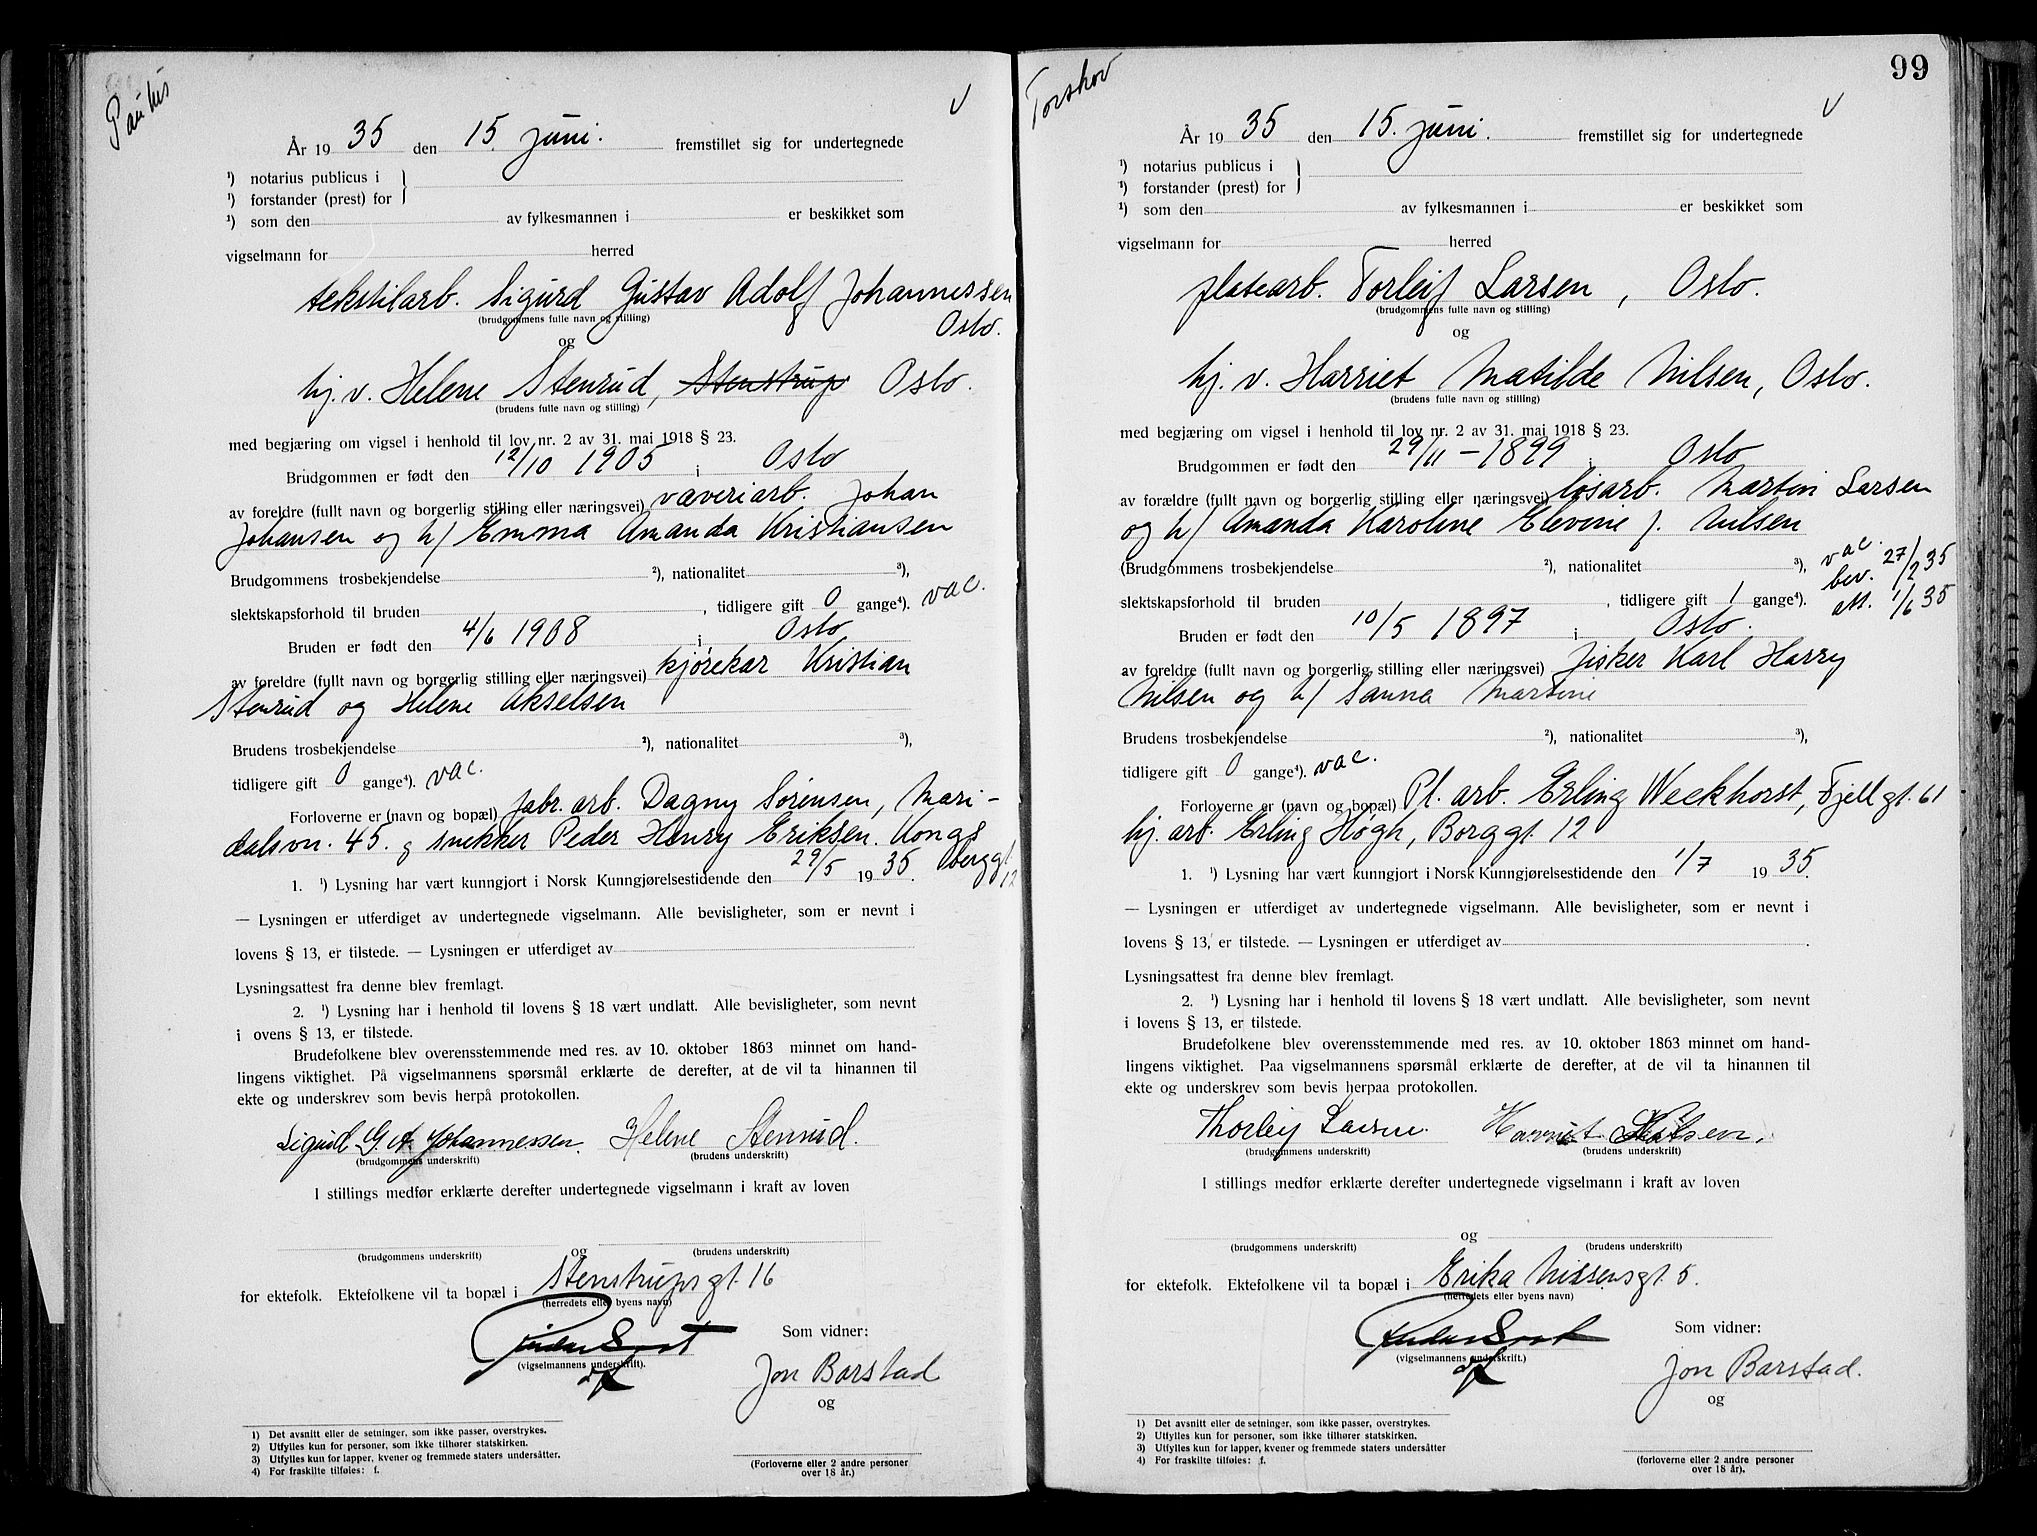 Paulus
V
År 1935 den 15. juni. fremstillet sig for undertegnede
¹) notarius publicus i
¹) forstander (prest) for
¹) som den av fylkesmannen i er beskikket som
vigselmann for herred
tekstilarb. Sigurd Gustav Adolf Johannessen
(brudgommens fulle navn og stilling)
Oslo.
og
hj. v. Helene Stenrud, Stenstrup Oslo.
(brudens fulle navn og stilling)
med begjæring om vigsel i henhold til lov nr. 2 av 31. mai 1918 § 23.
Brudgommen er født den 12/10 1905 i Oslo
av foreldre (fullt navn og borgerlig stilling eller næringsvei) væveriarb. Johan
Johansen og h/ Emma Amanda Kristiansen
Brudgommens trosbekjendelse ²), nationalitet ³),
slektskapsforhold til bruden , tidligere gift 0 gange⁴). vac.
Bruden er født den 4/6 1908 i Oslo
av foreldre (fullt navn og borgerlig stilling eller næringsvei) kjørekar Kristian
Stenrud og Helene Akselsen
Brudens trosbekjendelse ²), nationalitet ³),
tidligere gift 0 gange⁴). vac.
Forloverne er (navn og bopæl) fabr. arb. Dagny Sørensen, Mari-
dalsvn. 45. og snekker Peder Henry Eriksen. Kongs
berggt. 12
1. ¹) Lysning har vært kunngjort i Norsk Kunngjørelsestidende den 29/5 1935.
— Lysningen er utferdiget av undertegnede vigselmann. Alle bevisligheter, som er nevnt i
lovens § 13, er tilstede. — Lysningen er utferdiget av
Lysningsattest fra denne blev fremlagt.
2. ¹) Lysning har i henhold til lovens § 18 vært undlatt. Alle bevisligheter, som nevnt
i ovens § 13, er tilstede.
Brudefolkene blev overensstemmende med res. av 10. oktober 1863 minnet om hand-
lingens viktighet. På vigselmannens spørsmål erklærte de derefter, at de vil ta hinannen til
ekte og underskrev som bevis herpå protokollen.
Sigurd G. A. Johannessen. Helene Stenrud.
(brudgommens underskrift) (brudens underskrift)
I stillings medfør erklærte derefter undertegnede vigselmann i kraft av loven
og
(brudgommens underskrift) (brudens underskrift)
for ektefolk. Ektefolkene vil ta bopæl i Stenstrupsgt. 16
(herredets eller byens navn)
Som vidner:
(vigselmannens underskrift).
Jon Barstad
og
1) Det avsnitt eller de setninger, som ikke passer, overstrykes.
2) Utfylles kun for personer, som ikke tilhører statskirken.
3) Utfylles kun for lapper, kvener og fremmede staters undersåtter.
4) For fraskilte tilføies: f.
(Forloverne eller 2 andre personer
over 18 år.)
Torshov
99
V
År 1935 den 15. juni. fremstillet sig for undertegnede
¹) notarius publicus i
¹) forstander (prest) for
¹) som den av fylkesmannen i er beskikket som
vigselmann for herred
platearb. Torleif Larsen, Oslo.
(brudgommens fulle navn og stilling)
og
hj. v. Harriet Matilde Nilsen, Oslo.
(brudens fulle navn og stilling)
med begjæring om vigsel i henhold til lov nr. 2 av 31. mai 1918 § 23.
Brudgommen er født den 29/11 - 1899 i Oslo
av forældre (fullt navn og borgerlig stilling eller næringsvei) løsarb. Martin Larsen
og h/ Amanda Karoline Elevine f. Nilsen
(Brudgommens trosbekjendelse ²), nationalitet ³), vac.
bev. 27/2 35
slektskapsforhold til bruden , tidligere gift 1 gange⁴). att. 1/6 35
Bruden er født den 10/5 1897 i Oslo.
av foreldre (fullt navn og borgerlig stilling eller næringsvei) fisker Karl Harry
Nilsen og h/ Sanna Martine
Brudens trosbekjendelse ²), nationalitet ³),
tidligere gift 0 gange⁴). vac.
Forloverne er (navn og bopæl) Pl. arb. Erling Weckhorst, Fjellgt. 61
hj. arb. Erling Høgh, Borggt. 12
1. ¹) Lysning har vært kunngjort i Norsk Kunngjørelsestidende den 1/7 1935.
— Lysningen er utferdiget av undertegnede vigselmann. Alle bevisligheter, som er nevnt i
lovens § 13, er tilstede. — Lysningen er utferdiget av .
Lysningsattest fra denne blev fremlagt.
2. ¹) Lysning har i henhold til lovens § 18 vært undlatt. Alle bevisligheter, som nevnt
i lovens § 13, er tilstede.
Brudefolkene blev overensstemmende med res. av 10. oktober 1863 minnet om hand-
lingens viktighet. Paa vigselmannens spørsmål erklærte de derefter, at de vil ta hinannen til
ekte og underskrev som bevis herpaa protokollen.
Thorleif Larsen. Harriet Nilsen.
(brudgommens underskrift) (brudens underskrift)
I stillings medfør erklærte derefter undertegnede vigselmann i kraft av loven
og
(brudgommens underskrift) (brudens underskrift)
for ektefolk. Ektefolkene vil ta bopæl i Erika Nissensgt. 5.
(herredets eller byens navn)
Som vidner:
(vigselmannens underskrift.)
Jon Barstad.
og
1) Det avsnitt eller de setninger, som ikke passer, overstrykes.
2) Utfylles kun for personer, som ikke tilhører statskirken.
3) Utfylles kun for lapper, kvener og fremmede staters undersåtter
4) For fraskilte tilføies: f.
(forloverne eller 2 andre personer
over 18 år).